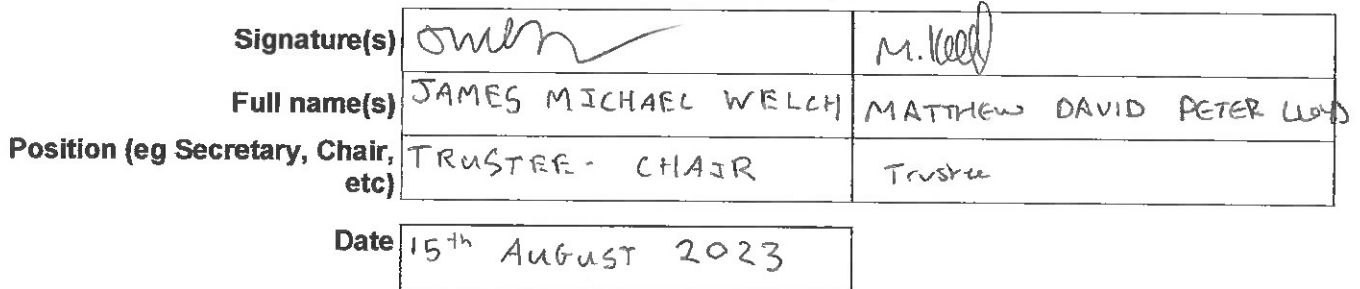 Signature(s)
Full name(s) JAMES MICHAEL WELCH MATTHEW DAVID PETER LLOYD
Position (eg Secretary, Chair, TRUSTEE - CHAIR Trustee
etc)
Date 15th AUGUST 2023